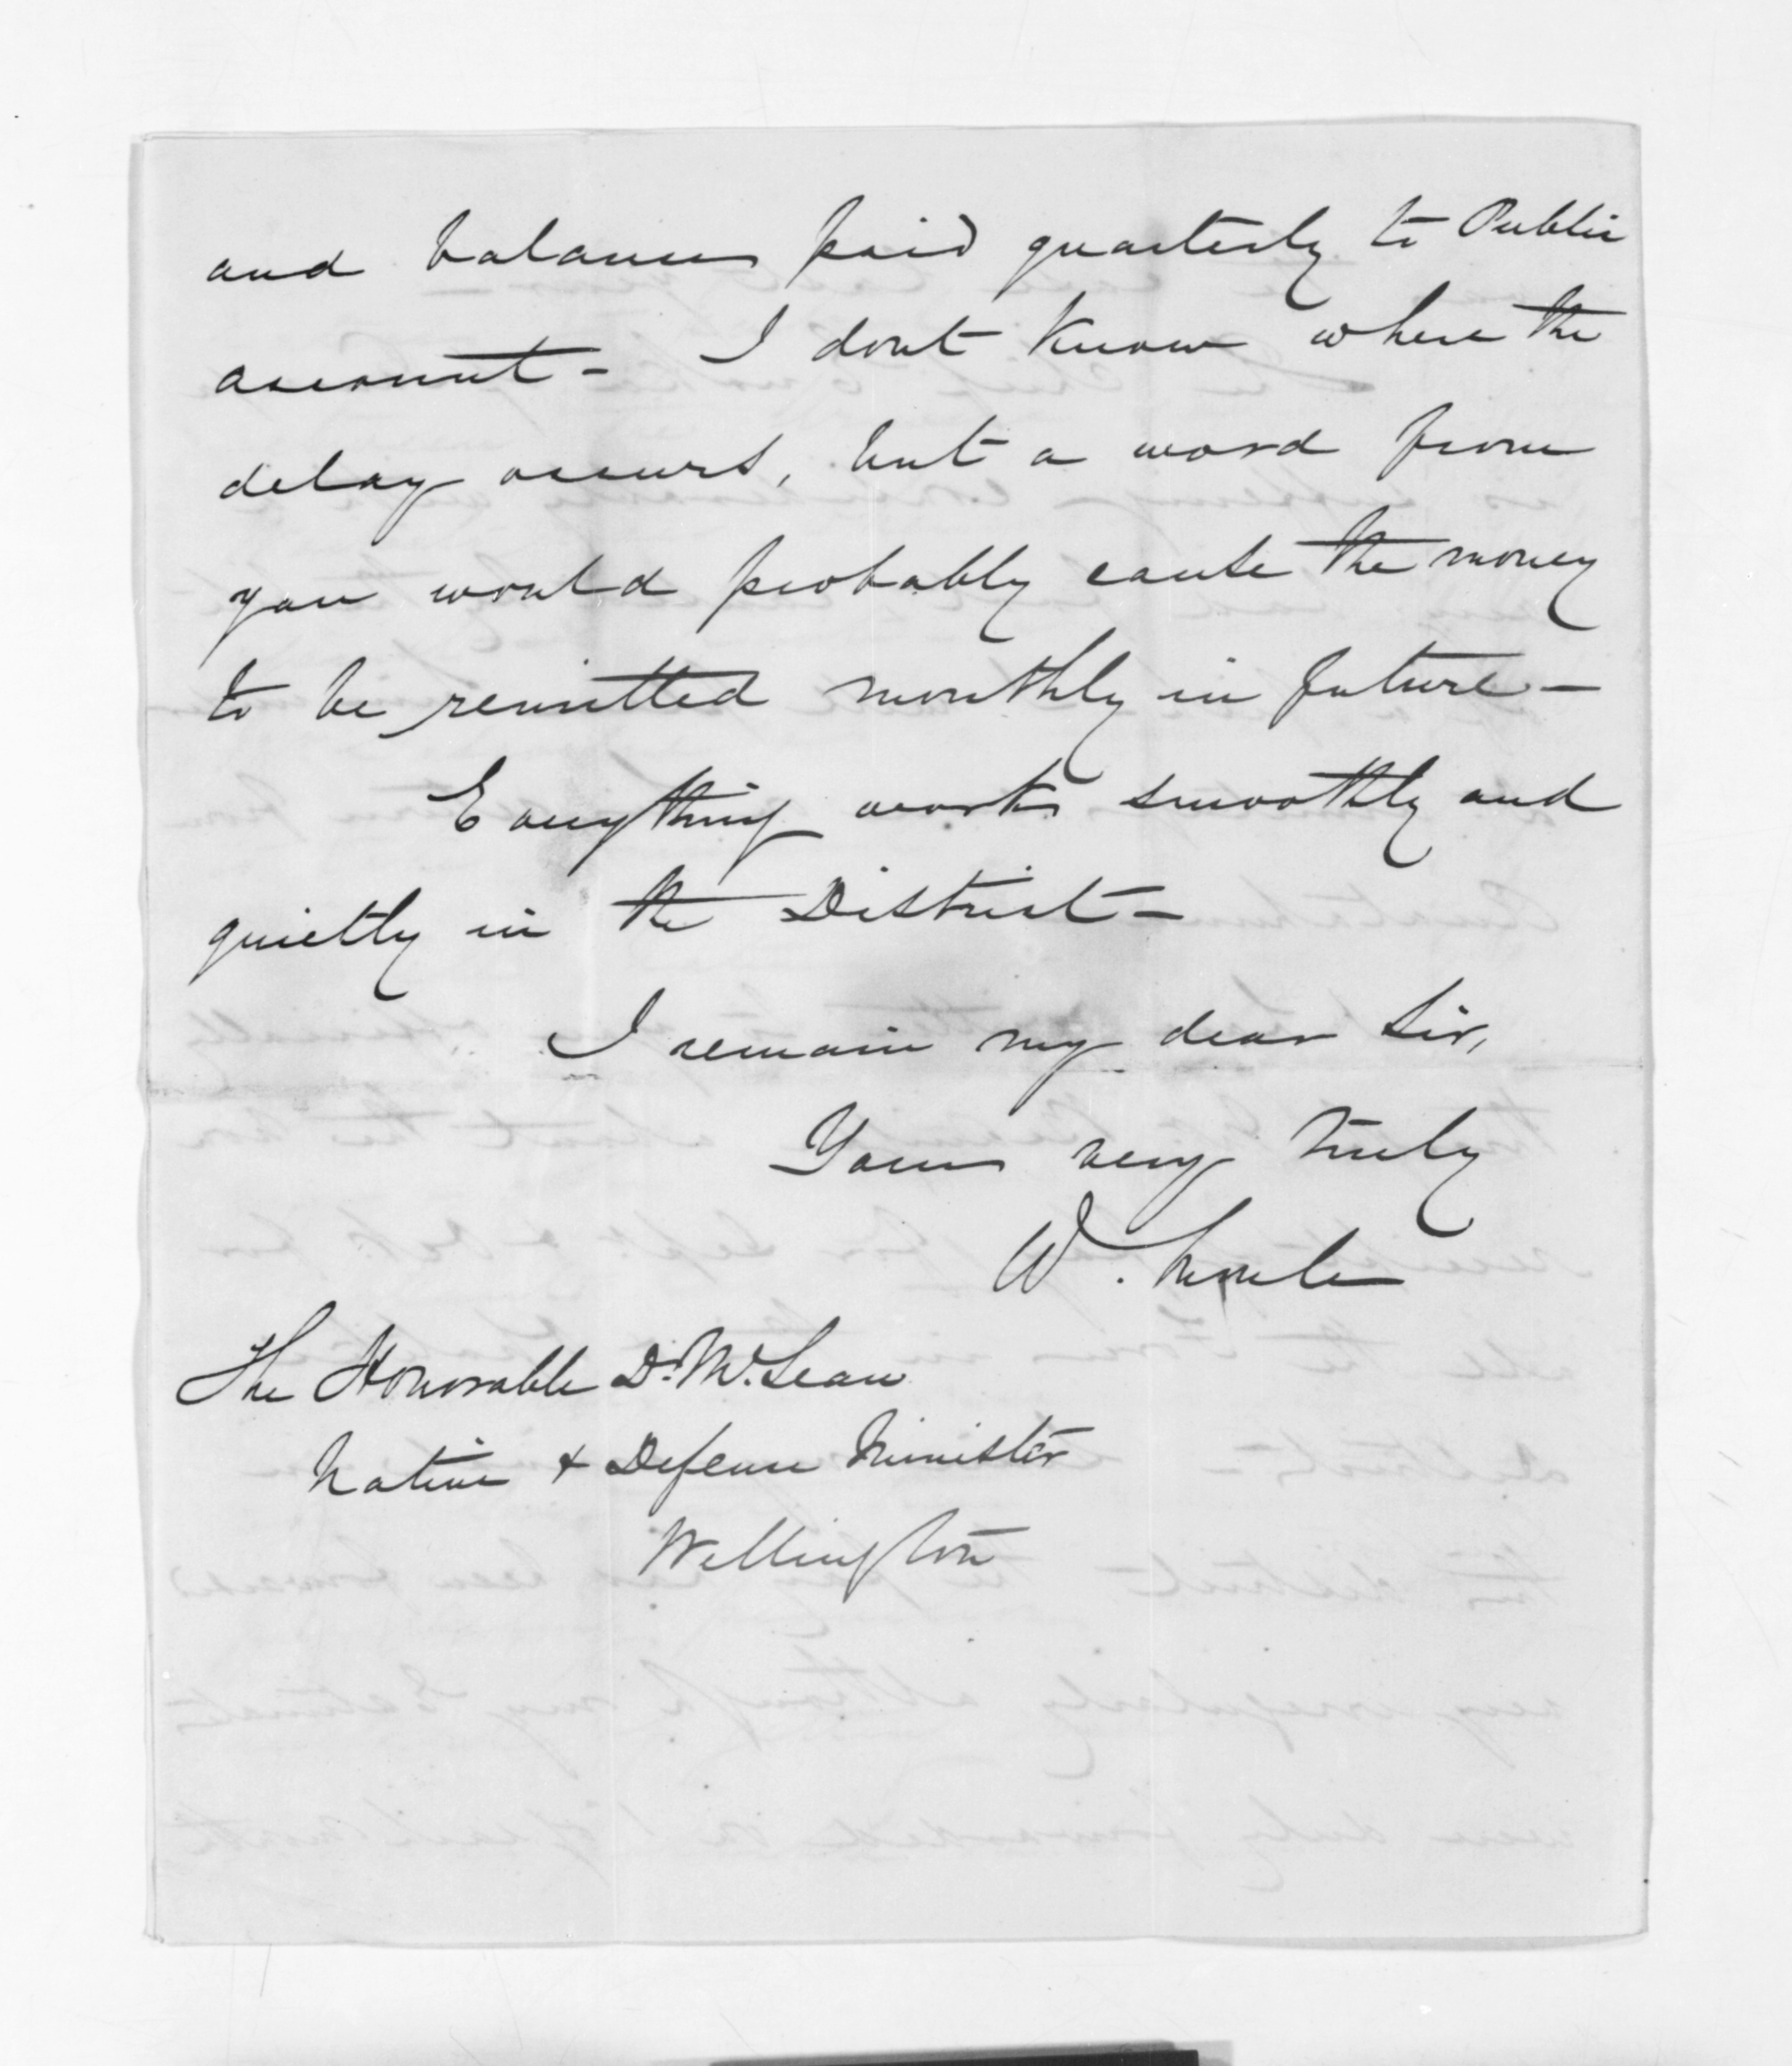 and balances paid quarterly to Public
account - I dont know where the
delay occurs, but a word from
you would probably cause the money
to be remitted monthly in future -
Everything works smoothly and
quietly in the District -
I remain my dear Sir,
Yours very truly
W.
The Honorable D. McLean
Native & Defense Minister
Wellington